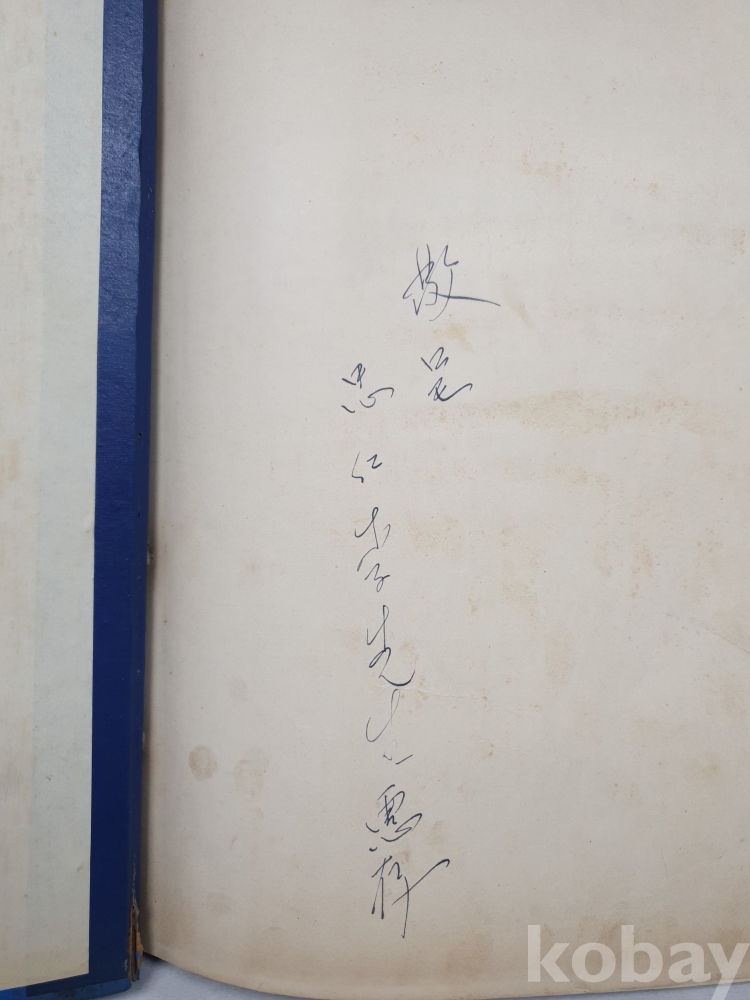 敬呈
忠仁李先生惠存
kobay